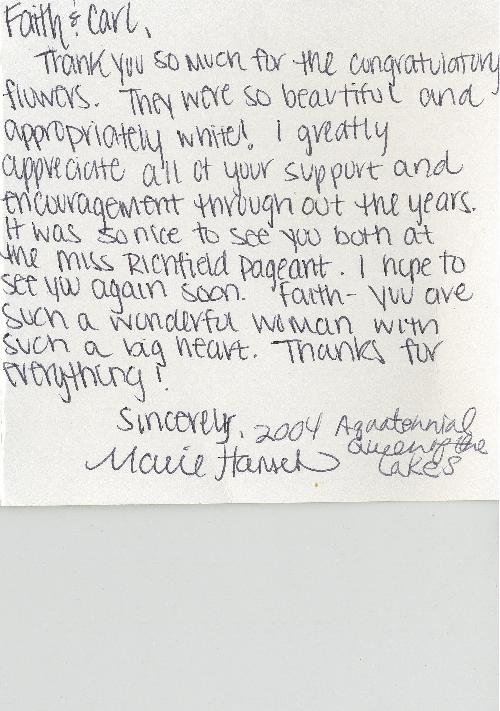 Faith & Carl,
Thank you so much for the congratulatory
flowers. They were so beautiful and
appropriately white! I greatly
appreciate all of your support and
encouragement through out the years.
It was so nice to see you both at
the Miss Richfield Pageant. I hope to
see you again soon. Faith- you are
such a wonderful woman with
such a big heart. Thanks for
everything!
Sincerely, 2004 Aquatennial
Queen of the
Marie Hansen Lakes